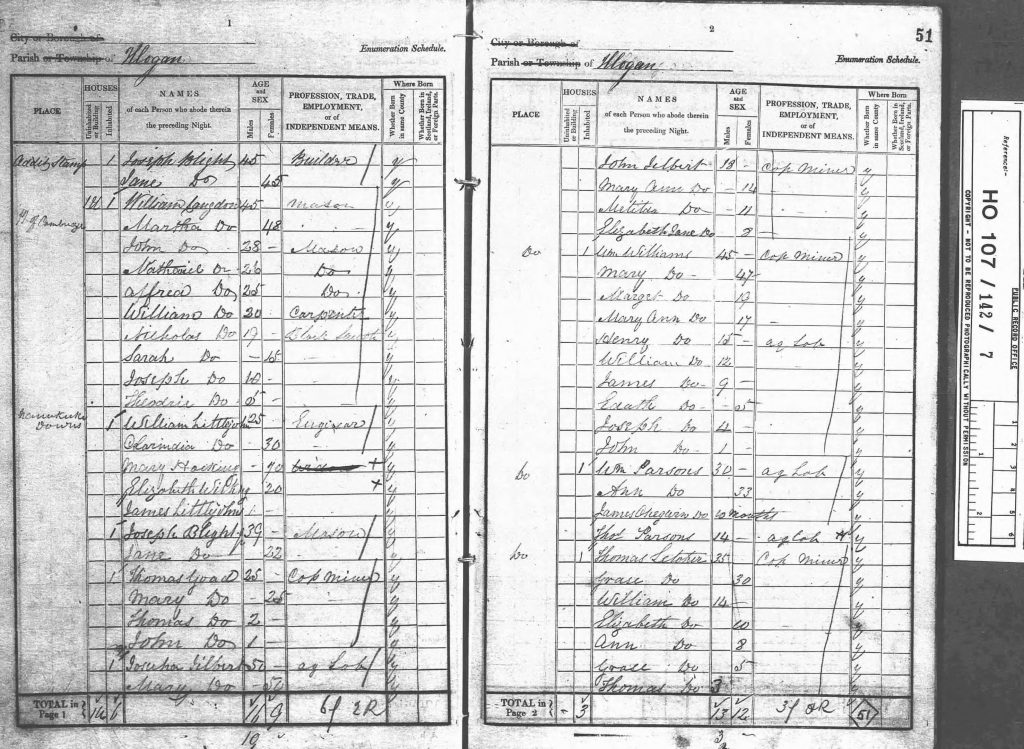 1
City or Borough of
Parish or Township of Illogan
Enumeration Schedule.
PLACE
HOUSES
Uninhabited or Building
Inhabited
NAMES of each Person who abode therein the preceding Night.
AGE and SEX
Males
Females
PROFESSION, TRADE, EMPLOYMENT, or of INDEPENDENT MEANS.
Where Born
Whether Born in same County
Whether Born in Scotland, Ireland, or Foreign Parts.
1 Joseph Blight 45 Builder y
Jane Do 45 y
1 William Langdon 45 Mason y
Martha Do 48 y
John Do 28 Mason y
Nathaniel Do 26 Do y
Alfred Do 25 Do y
William Do 20 Carpenter y
Nicholas Do 17 Black Smith y
Sarah Do 15 y
Joseph Do 10 y
Do 5 y
Downs 1 William Littlejohn 25 Engineer y
Do 30 y
Mary Hocking 70 + y
Elizabeth 20 + y
James Littlejohn 1 y
1 Joseph Blight 39 Mason y
Jane Do 22 y
1 Thomas Goad 25 Cop Miner y
Mary Do 25 y
Thomas Do 2 y
John Do 1 y
1 Gilbert 50 ag Lab y
Mary Do 50 y
TOTAL in Page 1 16 9
19
2
51
City or Borough of
Parish or Township of Illogan
Enumeration Schedule.
PLACE
HOUSES
Uninhabited or Building
Inhabited
NAMES of each Person who abode therein the preceding Night.
AGE and SEX
Males
Females
PROFESSION, TRADE, EMPLOYMENT, or of INDEPENDENT MEANS.
Where Born
Whether Born in same County
Whether Born in Scotland, Ireland, or Foreign Parts.
John Jelbert 18 – Cop Miner y
Mary Ann Do – 14 y
Matilda Do – 11 y
Elizabeth Jane Do 8 – y
Do 1 Wm Williams 45 – Cop Miner y
Mary Do – 47 y
Margret Do y
Mary Ann Do – 17 y
Henry Do 15 – ag Lab y
William Do 12 y
James Do 9 – y
Do – y
Joseph Do 4 – y
John Do 1 – y
Do 1 Wm Parsons 30 – ag Lab y
Ann Do 33 y
James Do 10 months y
Thos Parsons 14 – ag Lab + y
Do 1 Thomas Letcher 35 Cop Miner y
Grace Do 30 y
William Do 14 – y
Elizabeth Do 10 y
Ann Do 8 y
Grace Do 5 y
Thomas Do 3 y
TOTAL in Page 2 – 3 13 12 51
Reference:-
HO 107/142/7
PUBLIC RECORD OFFICE
COPYRIGHT - NOT TO BE REPRODUCED PHOTOGRAPHICALLY WITHOUT PERMISSION
1 2 3 4 5 6
1 2